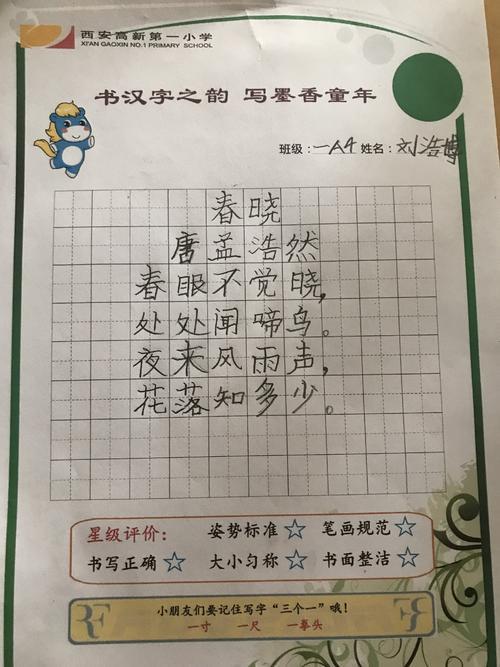 西安高新第一小学
XI'AN GAOXIN NO.1 PRIMARY SCHOOL
书汉字之韵 写墨香童年
班级：一A4 姓名：刘浩博
春晓
唐孟浩然
春眼不觉晓，
处处闻啼鸟。
夜来风雨声，
花落知多少。
星级评价： 姿势标准☆ 笔画规范☆
书写正确☆ 大小匀称☆ 书面整洁☆
小朋友们要记住写字“三个一”哦！
一寸 一尺 一拳头